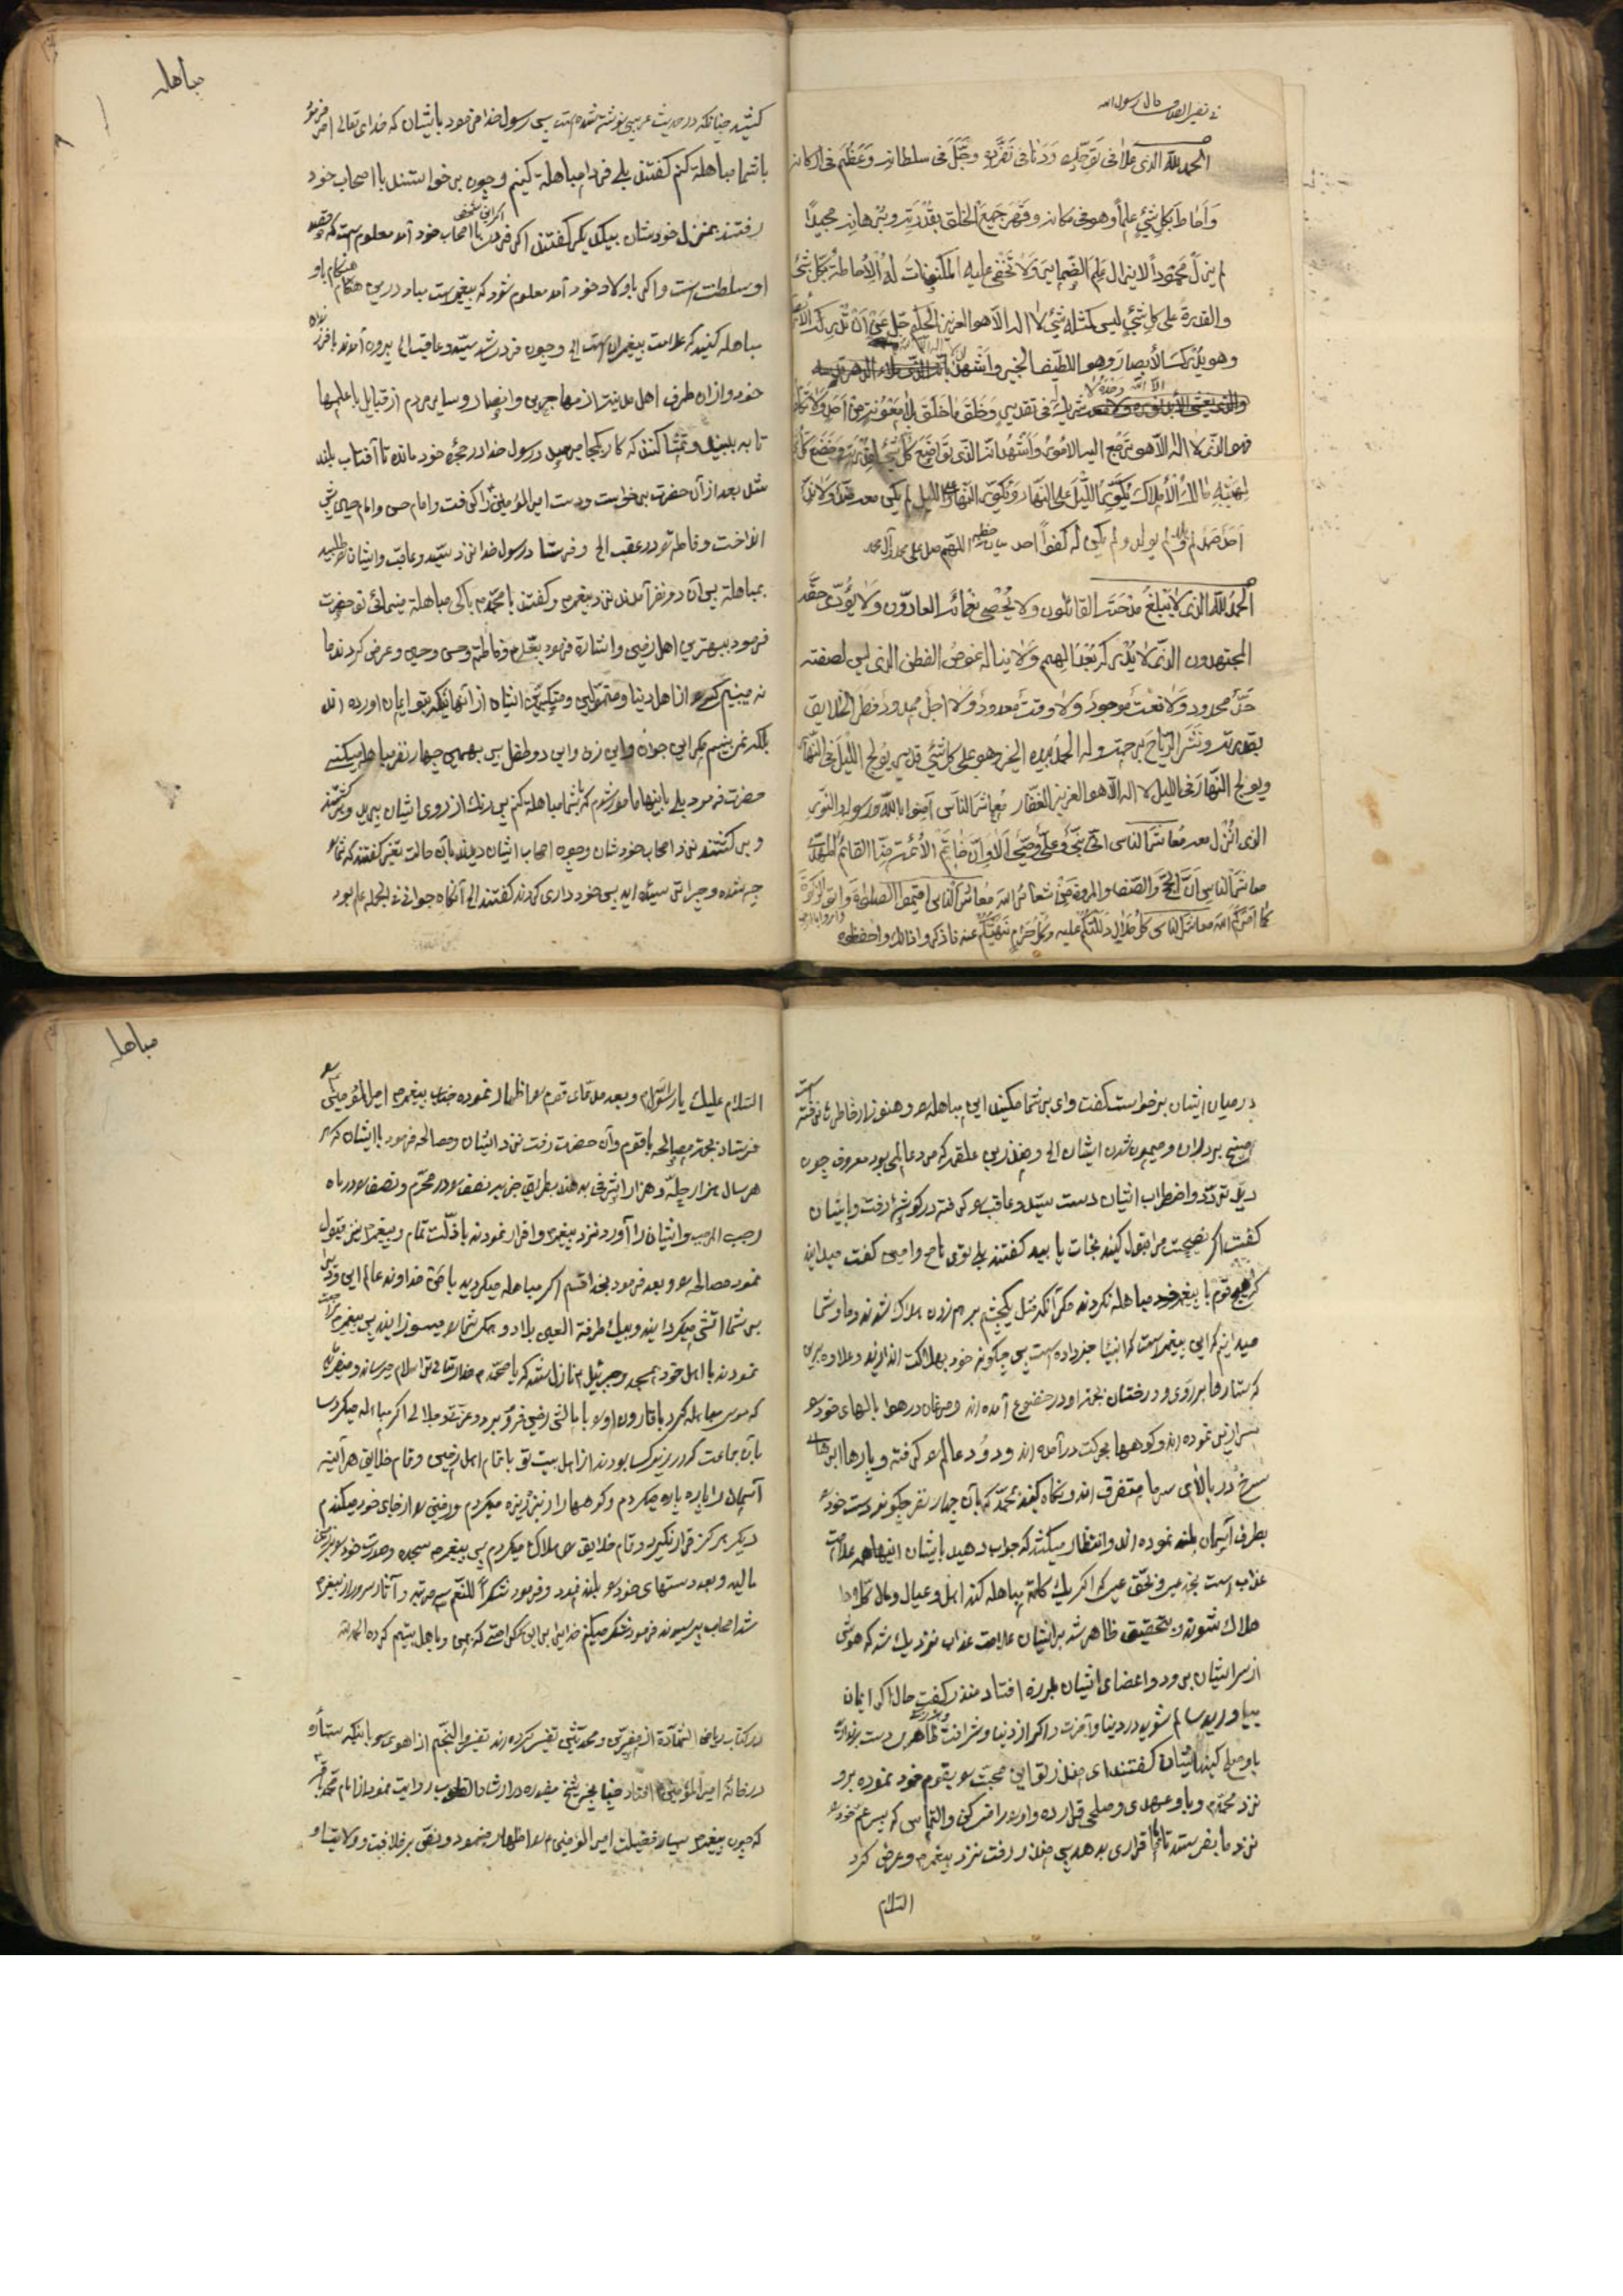 الحمد لله الذی علا فی توحّده ودنا فی تفرّده وجلّ فی سلطانه وعظم فی ارکانه
وأحاط بکل شیٔ علماً وهو فی مکانه وقهر جمیع الخلق بقدرته وبرهانه مجیداً
لم یزل محموداً لا یزال علم الضمایر ولا تخفی علیه المکنونات له الاحاطة بکلّ شیٔ
والقدرة علی کل شیٔ لیس کمثله شیٔ لا اله الا هو العزیز الحکیم جلّ عن أن تدرکه الأ
وهو یدرک الأبصار وهو اللطیف الخبیر واشهد
فهو الذی لا اله الا هو ترجع الیه الامور وأشهد انه الذی تواضع کل شیٔ
لهیبته مالک الأملاک یکوّر اللیل علی النهار ویکوّر النهار علی اللیل لم یکن معه ضدّ ولا ندّ
احد صمد لم یلد ولم یولد ولم یکن له کفواً احد اللهم صل علی محمد وآل محمد
الحمد لله الذی لا یبلغ مدحته القائلون ولا یحصی نعمائه العادّون ولا یؤدّی حقّه
المجتهدون الذی لا یدرکه بعد الهمم ولا یناله غوص الفطن الذی لیس لصفته
حدّ محدود ولا نعت موجود ولا وقت معدود ولا اجل ممدود فطر الخلایق
بقدرته ونشر الریاح برحمته وله الحمد بیده الخیر وهو علی کل شیٔ قدیر یولج اللیل فی النهار
ویولج النهار فی اللیل لا اله الا هو العزیز الغفار معاشر الناس آمنوا بالله ورسوله والنور
الذی انزل معه معاشر الناس انّی نبیّ وعلیّ وصیّی ألا وانّ خاتم الأئمة منّا القائم المهدی
معاشر الناس انّ الحجّ والصفا والمروة من شعائر الله معاشر الناس اقیموا الصلوة وآتوا الزکوة
کما أمرکم الله معاشر الناس کل حلال دللتکم علیه وکل حرام نهیتکم عنه فاذکروا ذالک واحفظوه
مباهله
کنید چنانکه در حدیث عربی نوشته شده است پس رسول خدا فرمود بایشان که خدای تعالی امر فرموده
با شما مباهلة کنم گفتند بلی فردا مباهلة کنیم وچون برخواستند با اصحاب خود
رفتند بمنزل خودشان بیکدیگر گفتند اگر فردا با اصحاب خود آمد معلوم است که قصد
او سلطنت است واگر با اولاد خود آمد معلوم شود که پیغمبر است مبادا در این هنگام با او
مباهله کنید که علامت پیغمبران است الی وچون فردا شد سیّد وعاقب الی بیرون آمدند با فرزندان
خود واز ان طرف اهل مدینة از مهاجرین وانصار وسایر مردم از قبایل با علمها
تا به بینند وتماشا کنند که کار بکجا میرسد ورسول خدا در حجرهٔ خود مانده تا آفتاب بلند
شد بعد از آن حضرت برخواست ودست امیر المؤمنین را گرفت وامام حسن وامام حسین پیش
انداخت وفاطمة در عقب الی وفرستاد رسول خدا نزد سیّد وعاقب وایشان را طلبید
بمباهلة پس آن دو نفر آمدند نزد پیغمبر وگفتند یا محمّد با کی مباهلة مینمائی تو حضرت
فرمود ببهترین اهل زمین واشارة فرمود بعلی وفاطمة وحسن وحسین وعرض کردند ما
نه مینیم کسی از اهل دنیا ومتموّلین ومتکبّرین ایشان از آنهائیکه بتو ایمان آورده اند
بلکه نمی بینیم مگر این جوان واین زن واین دو طفل پس بهمین چهار نفر مباهله میکنی
حضرت فرمود بلی باینها مامور شدم که با شما مباهلة کنم پس رنک از روی ایشان پرید وبرگشتند
وبرگشتند نزد اصحاب خودشان وچون اصحاب ایشان دیدند بآن حالت تغیر گفتند که شما را
چه شده وچرا این سیاه اید پس خود داری کردند گفتند الی آنگاه جوانی که از جمله علم بود
در میان ایشان برخواست گفت وای بر شما مکنید این مباهله را وهنوز از خاطر شما نرفته است
مسخ برادران ومیمون شدن ایشان الی ومنذر بن علقمه که مرد عالمی بود معروف چون
دید تردّد واضطراب ایشان دست سیّد وعاقب را گرفته در گوشهٔ رفت وبایشان
گفت اگر نصیحت مرا قبول کنید نجات یابید گفتند بلی توئی ناصح وامین گفت میدانید
که هیچ قوم با پیغمبر خود مباهله نکردند مگر آنکه مثل یک چشم بر هم زدن هلاک شدند وما وشما
میدانیم که این پیغمبر است که انبیا خبر داده است پس چگونه خود بهلاکت اندازید وعلاوه بر این
که ستارها بر روی ودرختان بجهة او در خضوع آمده اند ومرغان در هوا بالهای خود را
بسر زیر نموده اند وکوهها بحرکت در آمده اند ودود عالم را گرفته وپارها ابر های
سرخ در بالای سر ما متفرق اند ونگاه کنید بمحمّد که بآن چهار نفر چگونه دست خود را
بطرف آسمان بلند نموده اند وانتظار میکشند که جواب دهید بایشان اینها همه علامت
عذاب است بخدا عیسی وبحق عیسی که اگر یک کلمة بمباهله کنند اهل وعیال ومال کل ما
هلاک شوند وبتحقیق ظاهر شد بر ایشان علامت عذاب نزدیک شد که هوش
از سر ایشان برود واعضای ایشان بلرزه افتاد منذر گفت حال اگر ایمان
بیاورید سالم شوید در دنیا وآخرت واگر از دنیا وشرافت ظاهری دست بر ندارید
با او صلح کنید ایشان گفتند ای منذر تو این محبت را بقوم خود نموده برو
نزد محمّد وبا او عهدی وصلحی قرار ده واو را راضی کن والتماس که پسر عمّ خود را
نزد ما بفرستد تا با ما قراری بدهد پس منذر رفت نزد پیغمبر وعرض کرد
السلام
مباهله
السلام علیک یا رسول الله وبعد مدّعای قوم را اظهار نموده جناب پیغمبر امیر المؤمنین را
فرستاد بجهة مصالحه با قوم وآن حضرت رفت نزد ایشان ومصالحه فرمود با ایشان که در
هر سال هزار حلّه وهزار اشرفی بدهند بطریق جزیه نصف را در محرّم ونصف را در ماه
رجب المرجب وایشان را آورد نزد پیغمبر واقرار نمودند با ذلّت تمام وپیغمبر نیز قبول
نمود مصالحه را وبعد فرمود بخدا قسم اگر مباهله میکردید با من خداوند عالم این وادی را
بر شما آتش میگردانید وبیک طرفة العین بلاد وهمگی شما را میسوزانید پس پیغمبر مراجعت
نمودند با اهل خود بمسجد وجبرئیل نازل شد که یا محمّد خدا وند تعالی ترا سلام میرساند ومیفرماید
که موسی مباهله کرد با قارون او را با مالش زمین فرو برد وعزّت وجلالی اگر مباهله میکردی
بآن جماعت که در زیر کسا بودند از اهل بیت تو با تمام اهل زمین وتمام خلایق هر آینه
آسمان را پاره پاره میکردم وکوهها را ریزه ریزه میکردم وزمین را از جای خود میکندم
دیگر هرگز قرار نگیرد وتمام خلایق را هلاک میکردم پس پیغمبر سجده وصورت خود را بر زمین
مالید وبعد دستهای خود را بلند نمود وفرمود شکراً للمنعم سه مرتبه وآثار سرور از پیغمبر
شد اصحاب پرسیدند فرمود شکر میکنم خدا را بر این کرامتی که بمن وباهل بیتم کرده الحمد لله
در کتاب ریاض الشهادة از مفسّرین ومحدّثین تفسیر کرده اند تفسیر والنجم اذا هوی را باینکه ستاره
در خانهٔ امیر المؤمنین افتاد چنانچه شیخ مفید در ارشاد القلوب روایت نموده از امام محمّد باقر
که چون پیغمبر بسیار فضیلت امیر المؤمنین را اظهار مینمود ونصّ بر خلافت وولایت او